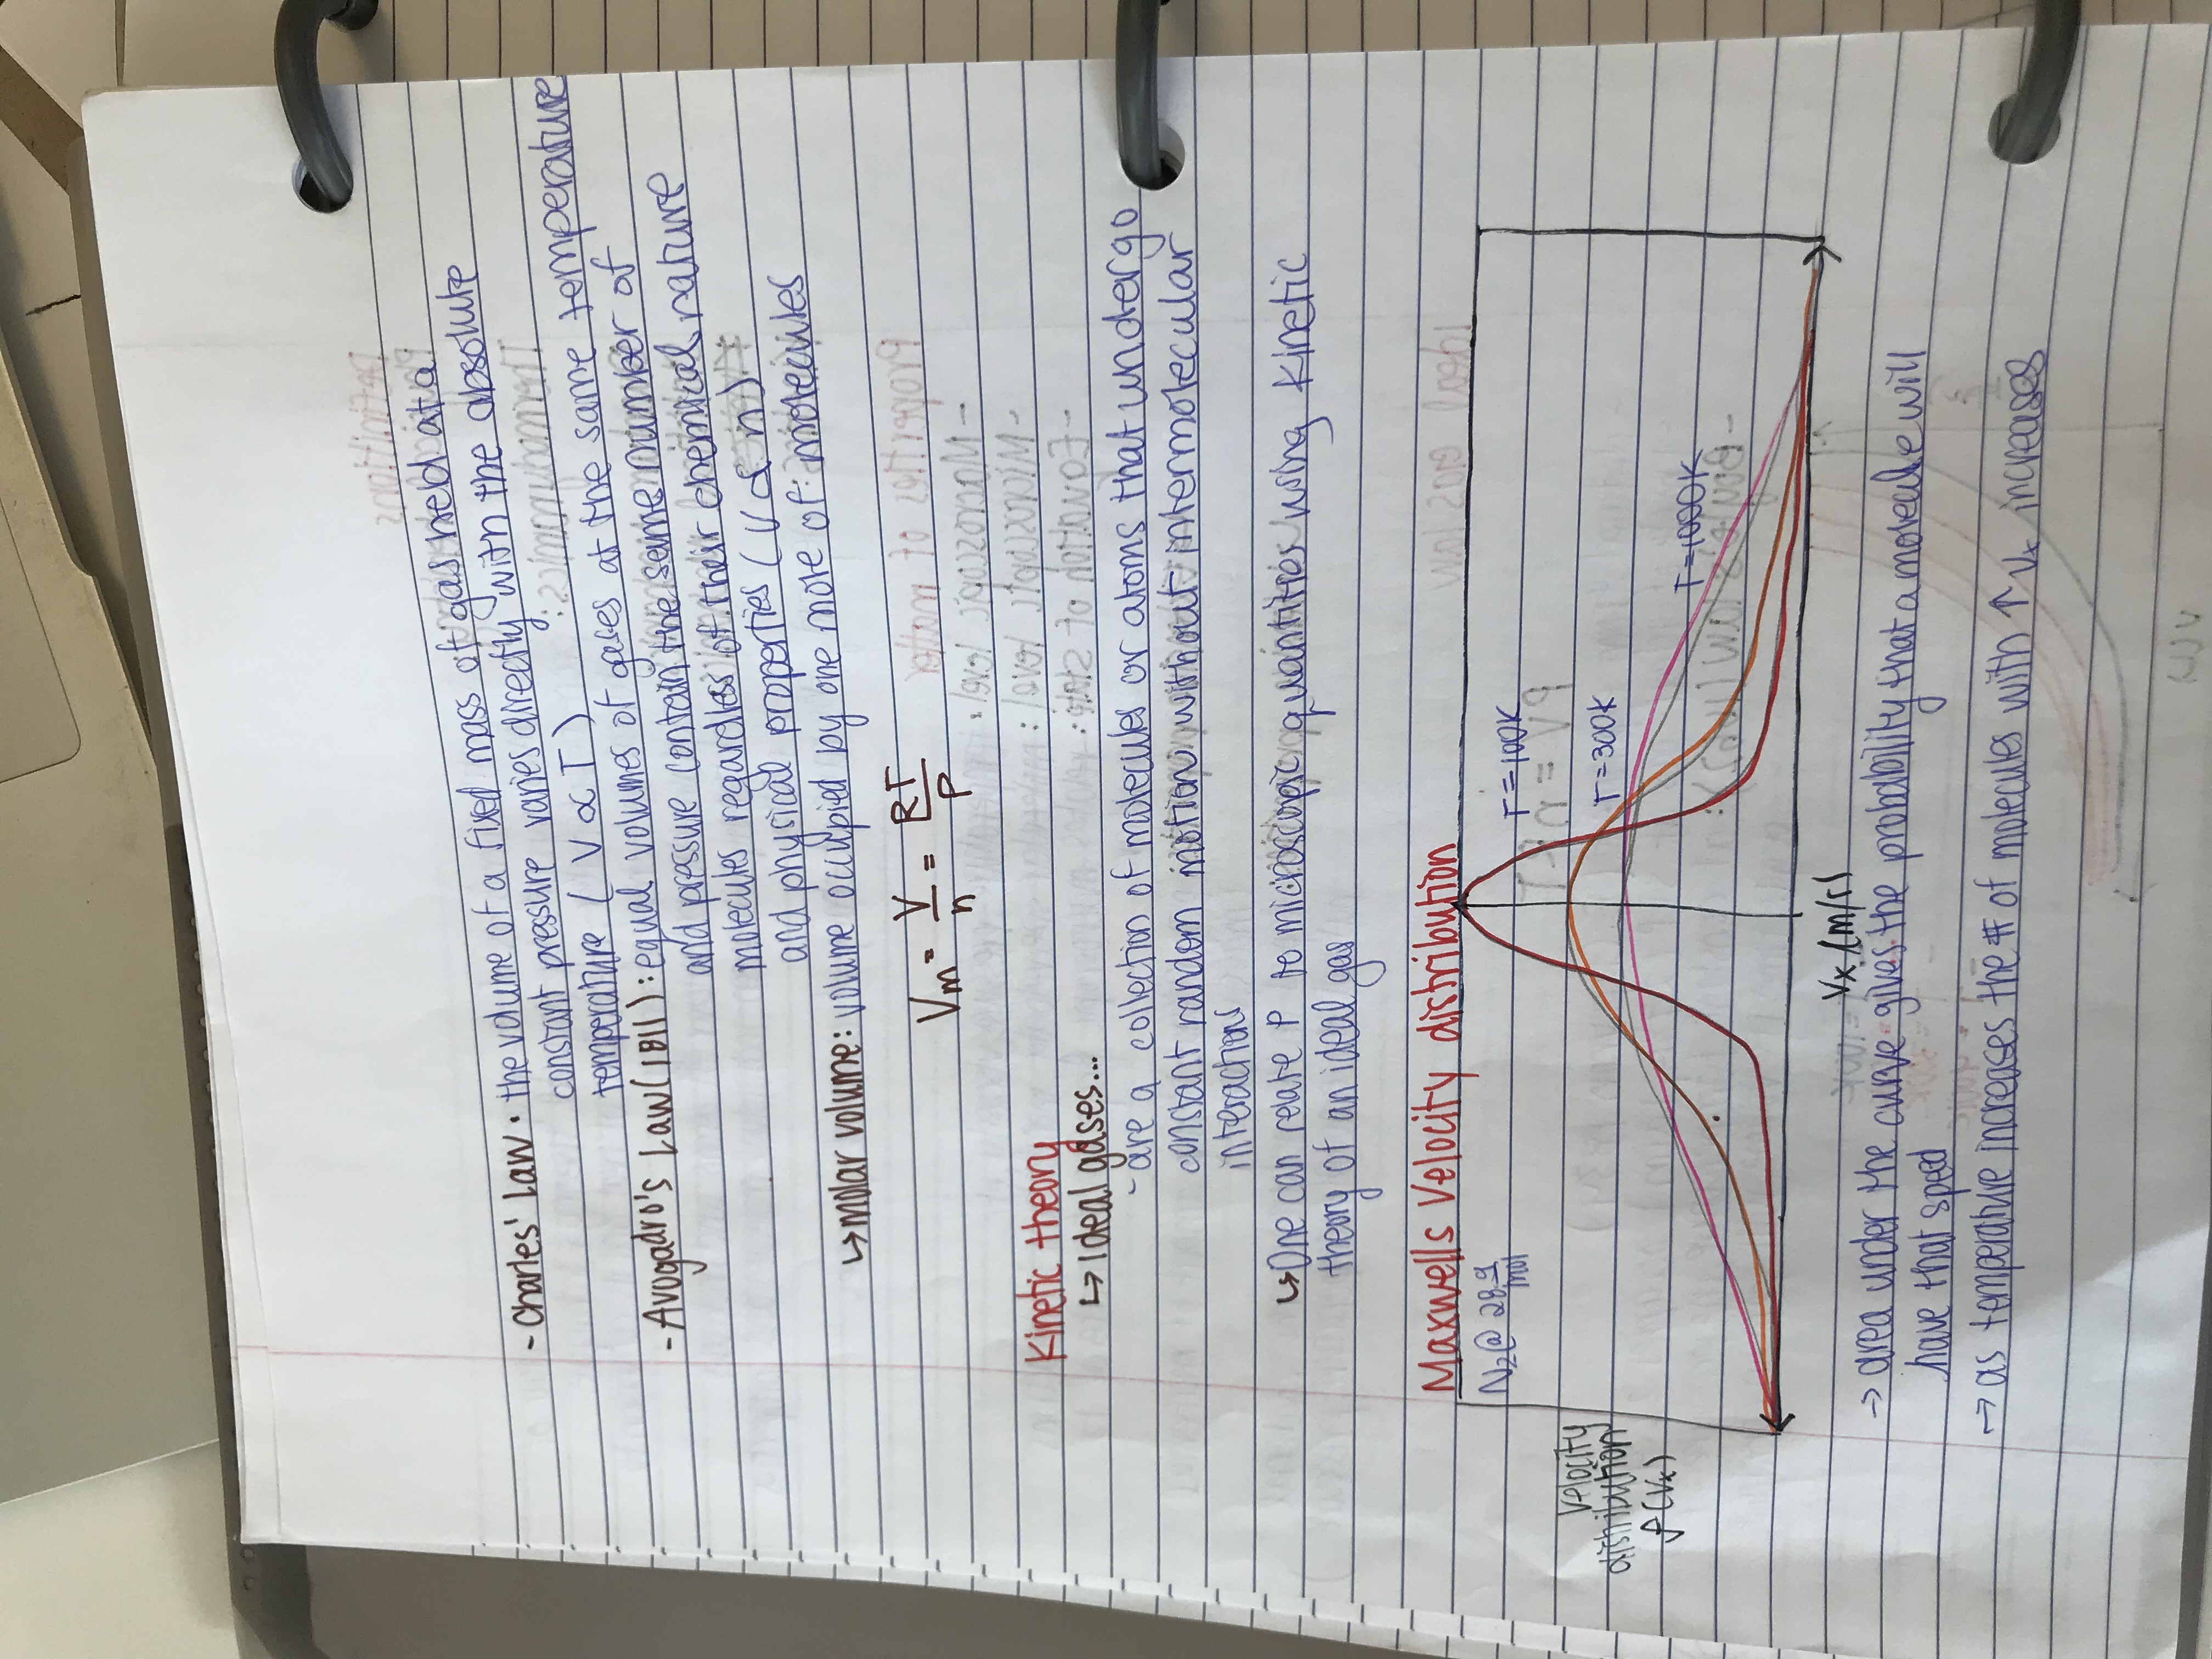 - Charles' Law: the volume of a fixed mass of gas held at a
constant pressure varies directly with the absolute
temperature (V ∝ T)
- Avogadro's Law (1811): equal volumes of gases at the same temperature
and pressure contain the same number of
molecules regardless of their chemical nature
and physical properties (V ∝ n)
↳ molar volume: volume occupied by one mole of molecules
Vm = V/n = RT/P
Kinetic theory
↳ Ideal gases...
- are a collection of molecules or atoms that undergo
constant random motion without intermolecular
interactions
↳ One can relate P to microscopic quantities using kinetic
theory of an ideal gas
Maxwells Velocity distribution
N₂ @ 28 g/mol
T=100K
T=300K
T=1000K
Velocity
distribution
f(Vx)
Vx (m/s)
→ area under the curve gives the probability that a molecule will
have that speed
→ as temperature increases the # of molecules with ↑ Vx increases